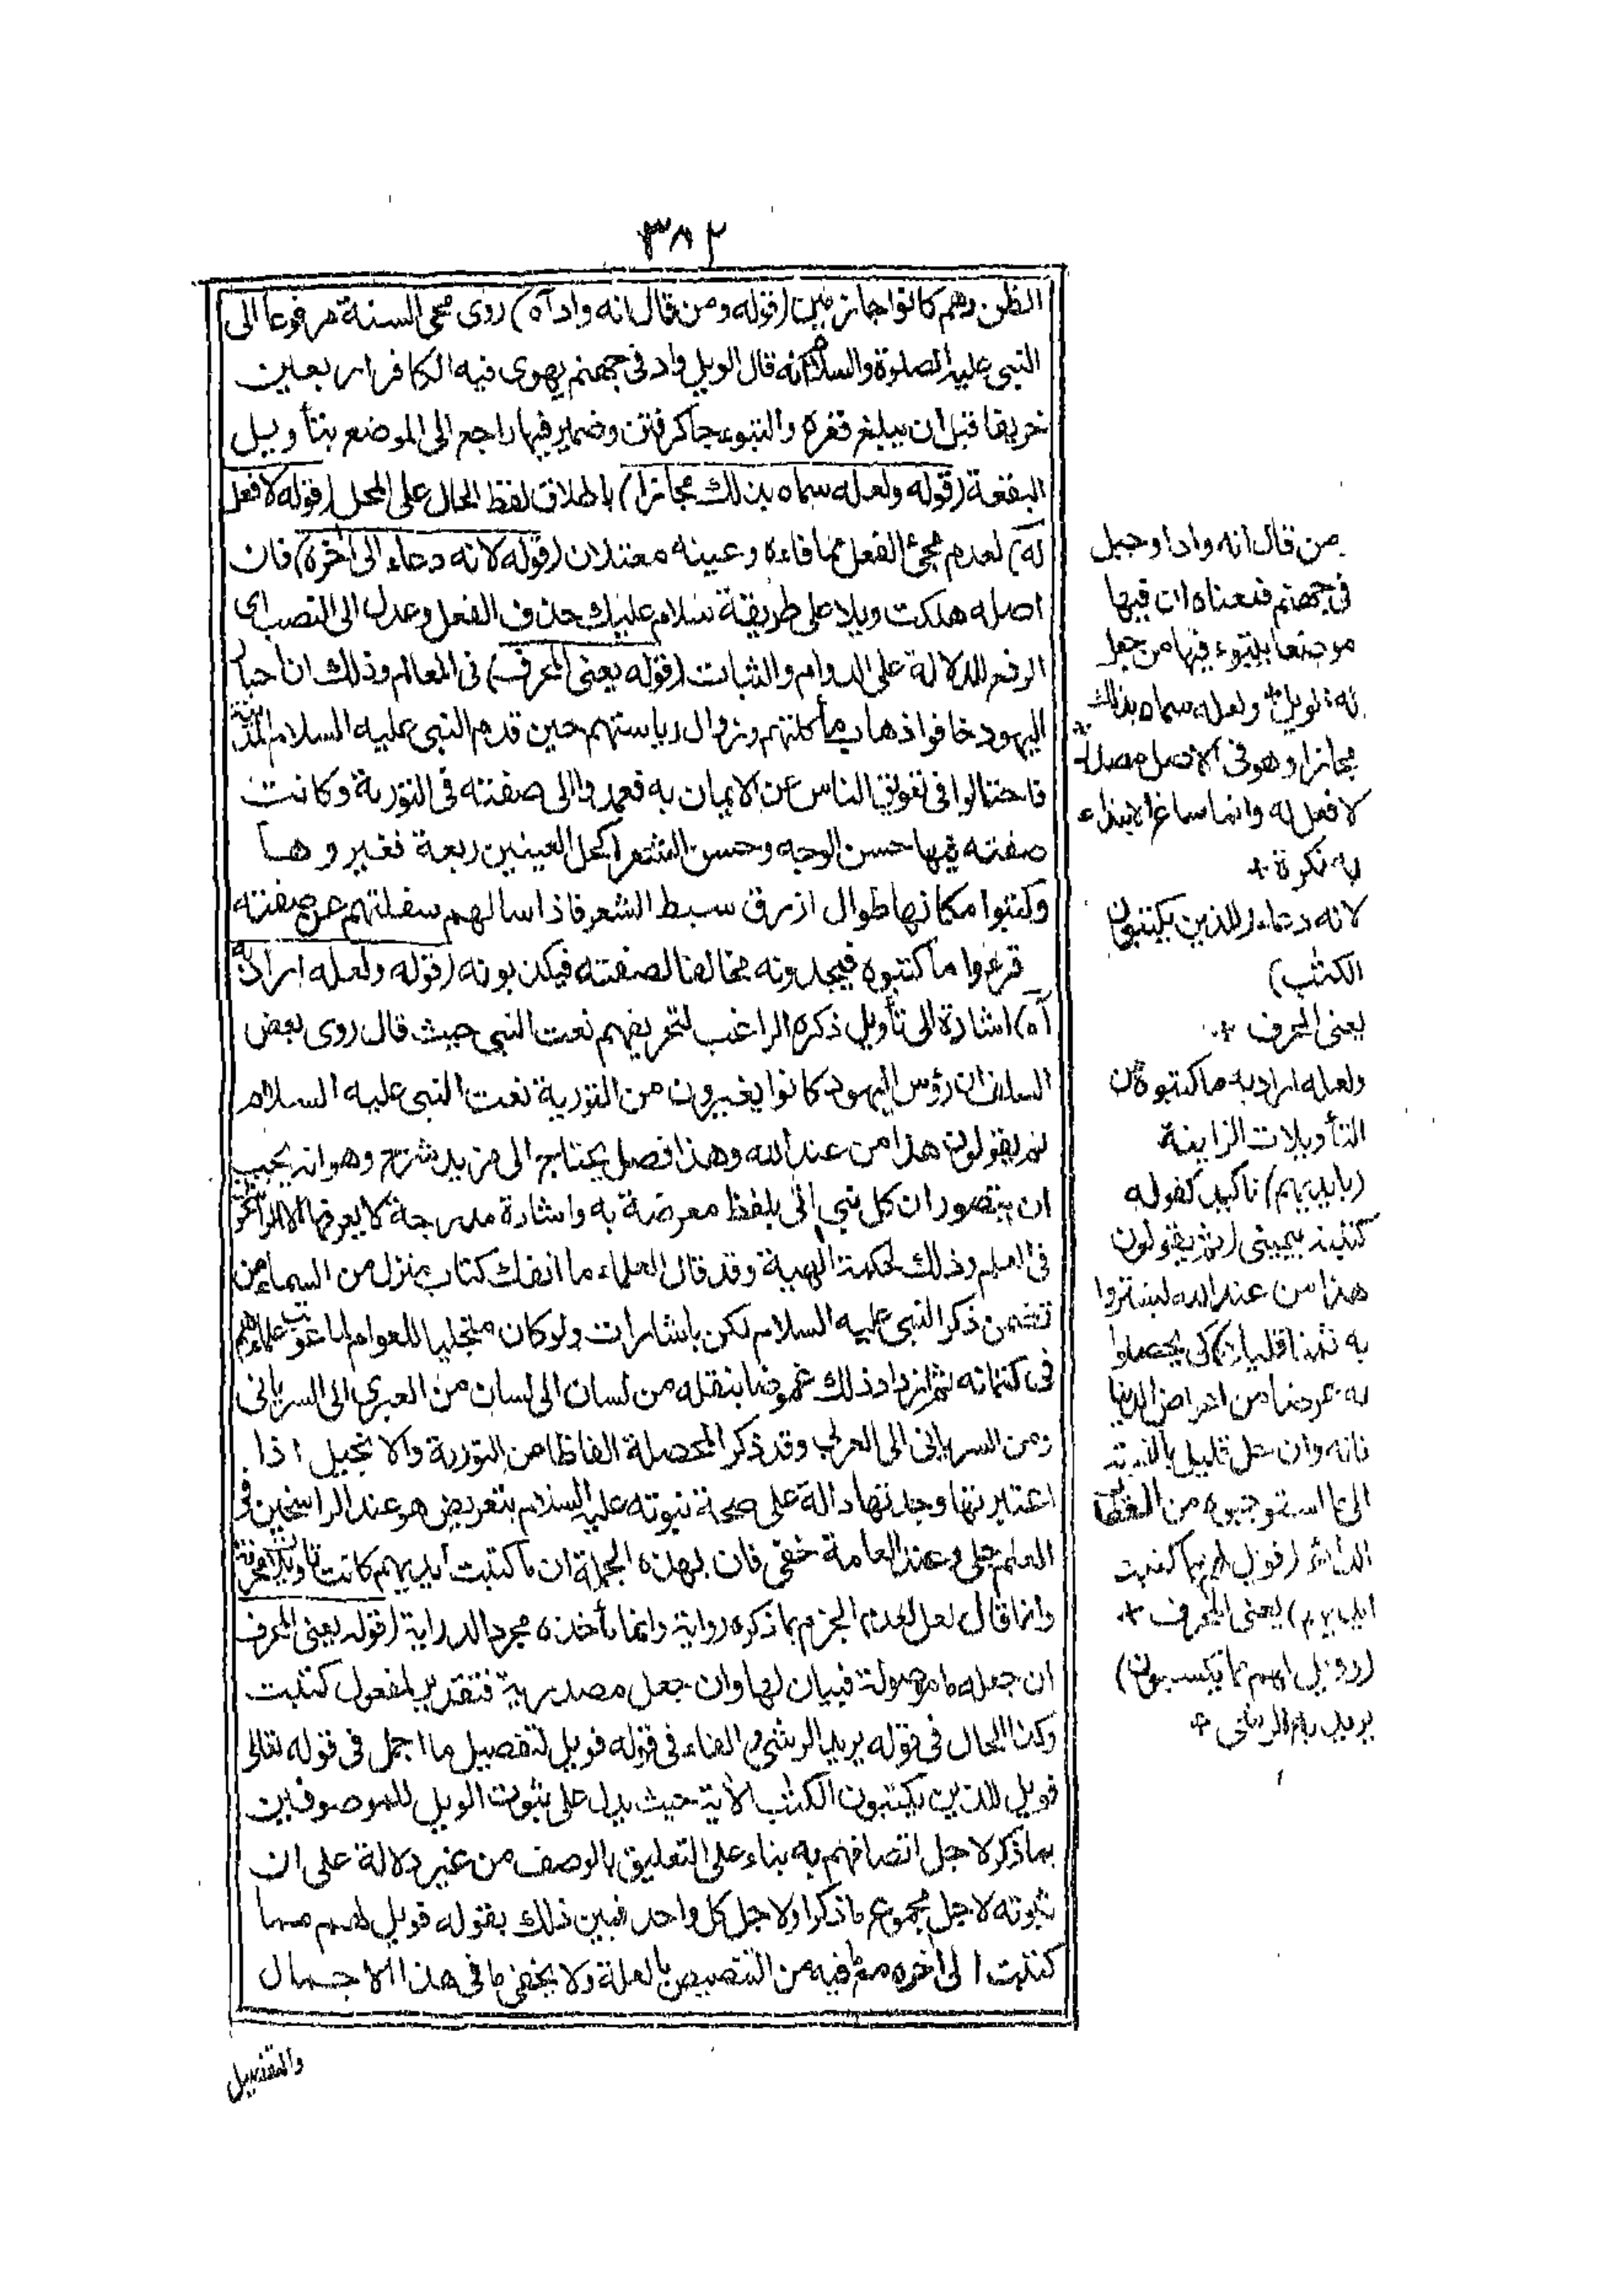 ٣٨٢
الظن وهم كانوا جازمين (قوله ومن قال انه واد آه) روى محى السنة مرفوعا الى
النبى عليه الصلوة والسلام انه قال الويل واد فى جهنم يهوى فيه الكافر اربعين
خريفا قبل ان يبلغ قعره والتبوء جاكرفتن وضمير فيها راجع الى الموضع بتأويل
البقعة (قوله ولعله سماه بذلك مجازا) باطلاق لفظ الحال على المحل (قوله لا فعل
له) لعدم مجئ الفعل مما فاءه وعينه معتلان (قوله لانه دعاء الى اخره) فان
اصله هلكت ويلا على طريقة سلام عليك حذف الفعل وعدل الى النصب الى
الرفع للدلالة على الدوام والثبات (قوله يعنى المحرف) فى المعالم وذلك ان احبار
اليهود خافوا ذهاب مأكلتهم وزوال رياستهم حين قدم النبى عليه السلام المدينة
فاحتالوا فى تعويق الناس عن الايمان به فعمدوا الى صفته فى التورية وكانت
صفته فيها حسن الوجه وحسن الشعر اكحل العينين ربعة فغيروها
وكتبوا مكانها طوال ازرق سبط الشعر فاذا سالهم سفلتهم عن صفته
قرءوا ما كتبوه فيجدونه مخالفا لصفته فيكذبونه (قوله ولعله اراد به
آه) اشارة الى تأويل ذكره الراغب لتحريفهم نعت النبى حيث قال روى بعض
السلف ان رؤس اليهود كانوا يغيرون من التورية نعت النبى عليه السلام
ثم يقولون هذا من عند الله وهذا فصل يحتاج الى مزيد شرح وهو انه يجب
ان يتصور ان كل نبى اتى بلفظ معرضة به واشارة مدرجة لا يعرفها الا الراسخون
فى العلم وذلك لحكمة الهية وقد قال العلماء ما انفك كتاب منزل من السماء من
تضمن ذكر النبى عليه السلام لكن باشارات ولو كان متجليا للعوام لما عوتب علماؤهم
فى كتمانه ثم ازداد ذلك غموضا بنقله من لسان الى لسان من العبرى الى السريانى
ومن السريانى الى العربى وقد ذكر المحصلة الفاظا من التورية والانجيل اذا
اعتبرتها وجدتها دالة على صحة نبوته عليه السلام بتعريض هو عند الراسخين فى
العلم جلى وعند العامة خفى فان بهذه الجملة ان ما كتبت ايديهم كانت تأويلات محرفة
وانما قال لعل لعدم الجزم بما ذكره رواية وانما مأخذه مجرد الدراية (قوله يعنى المحرف
ان جعل ما موصولة فبيان لها وان جعل مصدرية فتقدير لمفعول كتبت
وكذا الحال فى قوله يريد الرشى والفاء فى قوله فويل لتفصيل ما اجمل فى قوله تعالى
فويل للذين يكتبون الكتب الاية حيث يدل على ثبوت الويل للموصوفين
بما ذكر لاجل اتصافهم به بناء على التعليق بالوصف من غير دلالة على ان
ثبوته لاجل مجموع ما ذكر او لاجل كل واحد فبين ذلك بقوله فويل لهم مما
كتبت الى اخره مع ما فيه من التنصيص بالعلة ولا يخفى ما فى هذا الاجمال
والتفصيل
من قال انه واد او جبل
فى جهنم فمعناه ان فيها
موضعا يتبوء فيها من جعل
له الويل ولعله سماه بذلك
مجازا وهو فى الاصل مصدر
لا فعل له وانما ساغ الابتداء
به نكرة *
لانه دعاء (للذين يكتبون
الكتب)
يعنى المحرف *
ولعله اراد به ما كتبوه من
التأويلات الزاينة
(بايديهم) تاكيد كقوله
كتبته بيمينى (ثم يقولون
هذا من عند الله ليشتروا
به ثمنا قليلا) كى يحصلوا
به عرضا من اعراض الدنيا
فانه وان جل قليل بالنسبة
الى ما استوجبوه من العقاب
الدائم (فويل لهم مما كتبت
ايديهم) يعنى المحرف *
(وويل لهم مما يكسبون)
يريد به الرشى *